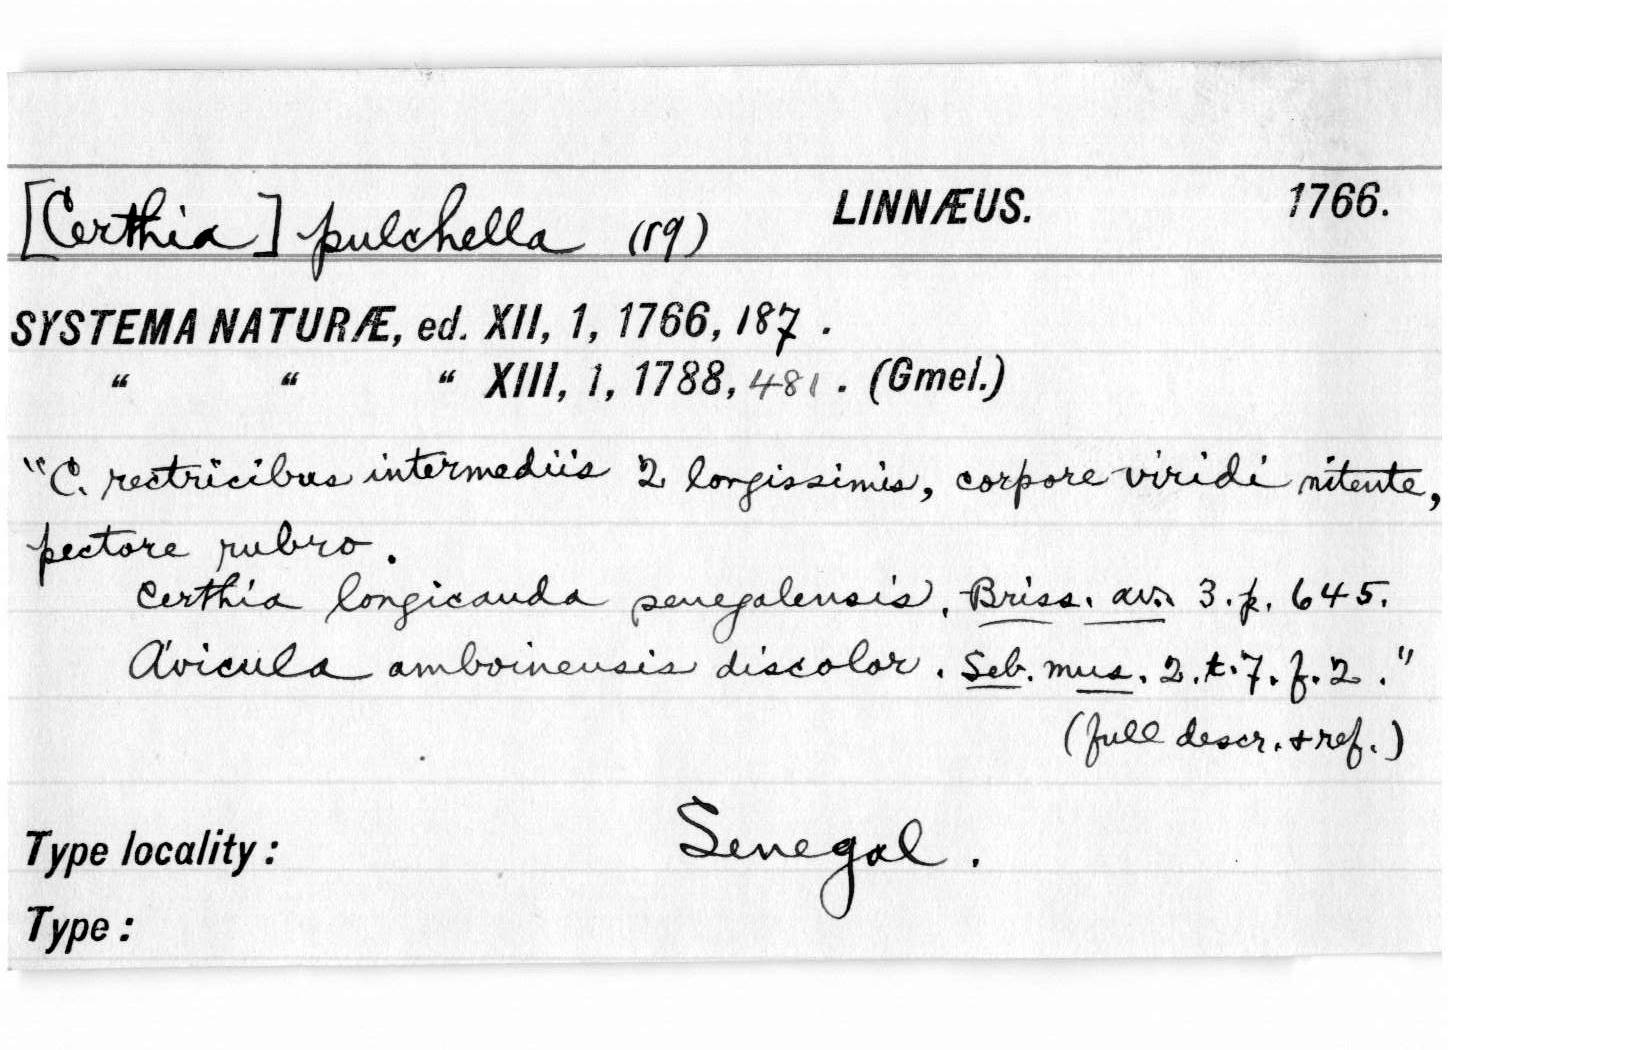 [Certhia] pulchella (19) LINNÆUS. 1766.
SYSTEMA NATURÆ, ed. XII, 1, 1766, 187.
“ “ “ XIII, 1, 1788, 481. (Gmel.)
"C. rectricibus intermediis 2 longissimis, corpore viridi nitente,
pectore rubro.
Certhia longicauda senegalensis. Briss. av. 3. p. 645.
Avicula amboinensis discolor. Seb. mus. 2. t. 7. f. 2."
(full descr. + ref.)
Type locality: Senegal.
Type: